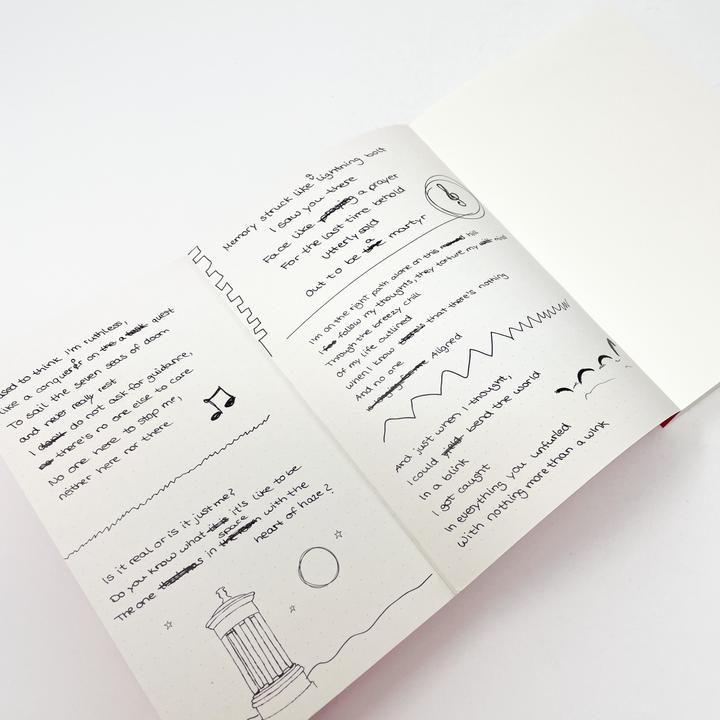 used to think I'm ruthless,
like a conqueror on the quest
To sail the seven seas of doom
and never really rest
I do not ask for guidance,
there's no one else to care
No one here to stop me,
neither here nor there
Is it real or is it just me?
Do you know what it's like to be
The one in space with the
heart of haze?
Memory struck like a lightning bolt
I saw you there
Face like a prayer
For the last time behold
Utterly sold
Out to be a martyr
I'm on the right path alone on this hill
I follow my thoughts, they torture my mind
Through the breezy chill
Of my life outlined
When I know that there's nothing
And no one Aligned
And just when I thought,
I could bend the world
In a blink
I got caught
In everything you unfurled
With nothing more than a wink